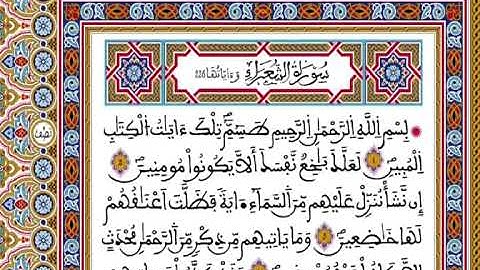 سُورَةُ الشُّعَرَاءِ وَءَايَاتُهَا
بِسْمِ اِ۬للَّهِ اِ۬لرَّحْمَٰنِ اِ۬لرَّحِيمِ طَسِٓمِّٓ تِلْكَ ءَايَٰتُ اُ۬لْكِتَٰبِ
اِ۬لْمُبِينِ ١ لَعَلَّكَ بَٰخِعٞ نَّفْسَكَ أَلَّا يَكُونُواْ مُومِنِينَ ٢
إِن نَّشَأْ نُنَزِّلْ عَلَيْهِم مِّنَ اَ۬لسَّمَآءِ ا۪يَةٗ فَظَلَّتَ اَعْنَٰقُهُمْ
لَهَا خَٰضِعِينَ ٣ وَمَا يَاتِيهِم مِّن ذِكْرٖ مِّنَ اَ۬لرَّحْمَٰنِ مُحْدَثٍ
نصف